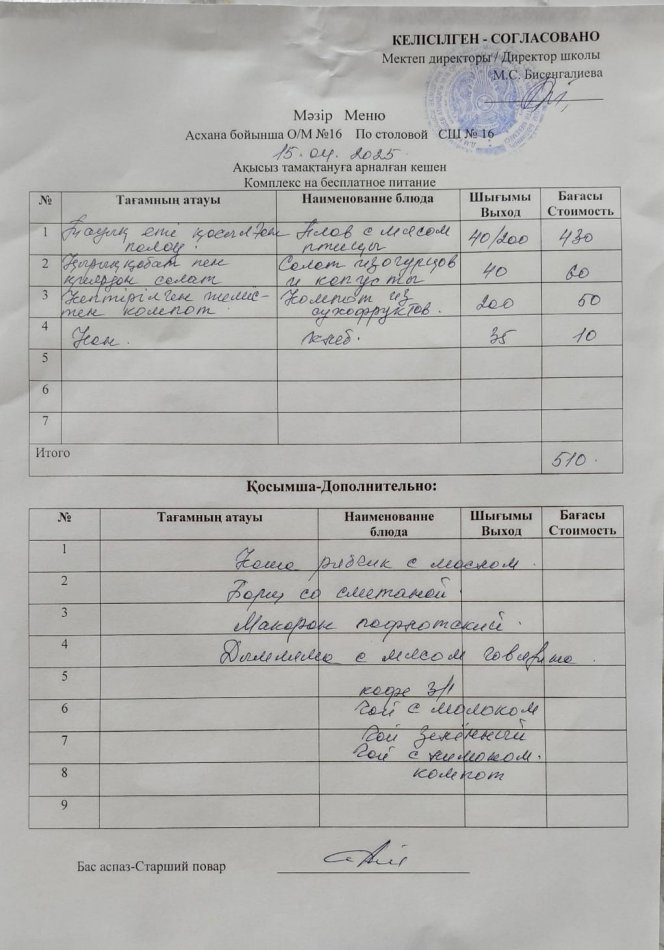 КЕЛІСІЛГЕН - СОГЛАСОВАНО
Мектеп директоры / Директор школы
М.С. Бисенгалиева
Мәзір Меню
Асхана бойынша О/М №16 По столовой СШ № 16
15.04.2025
Ақысыз тамақтануға арналған кешен
Комплекс на бесплатное питание
№ Тағамның атауы Наименование блюда Шығымы Выход Бағасы Стоимость
1 Тауық еті қосылған палоу. Плов с мясом птицы 40/200 430
2 Қырыққабат пен қиярдан салат Салат из огурцов и капусты 40 20
3 Кептірілген жеміс-тен компот Компот из сухофруктов. 200 50
4 Нан. Хлеб. 35 10
5
6
7
Итого 510.
Қосымша-Дополнительно:
№ Тағамның атауы Наименование блюда Шығымы Выход Бағасы Стоимость
1 Каша рябчик с маслом.
2 Борщ со сметаной.
3 Макарон по
4 Дымляма с мясом говядина.
5 кофе 3/1
6 Чай с молоком
7 Чай зелёный
Чай с лимоном.
8 компот
9
Бас аспаз-Старший повар